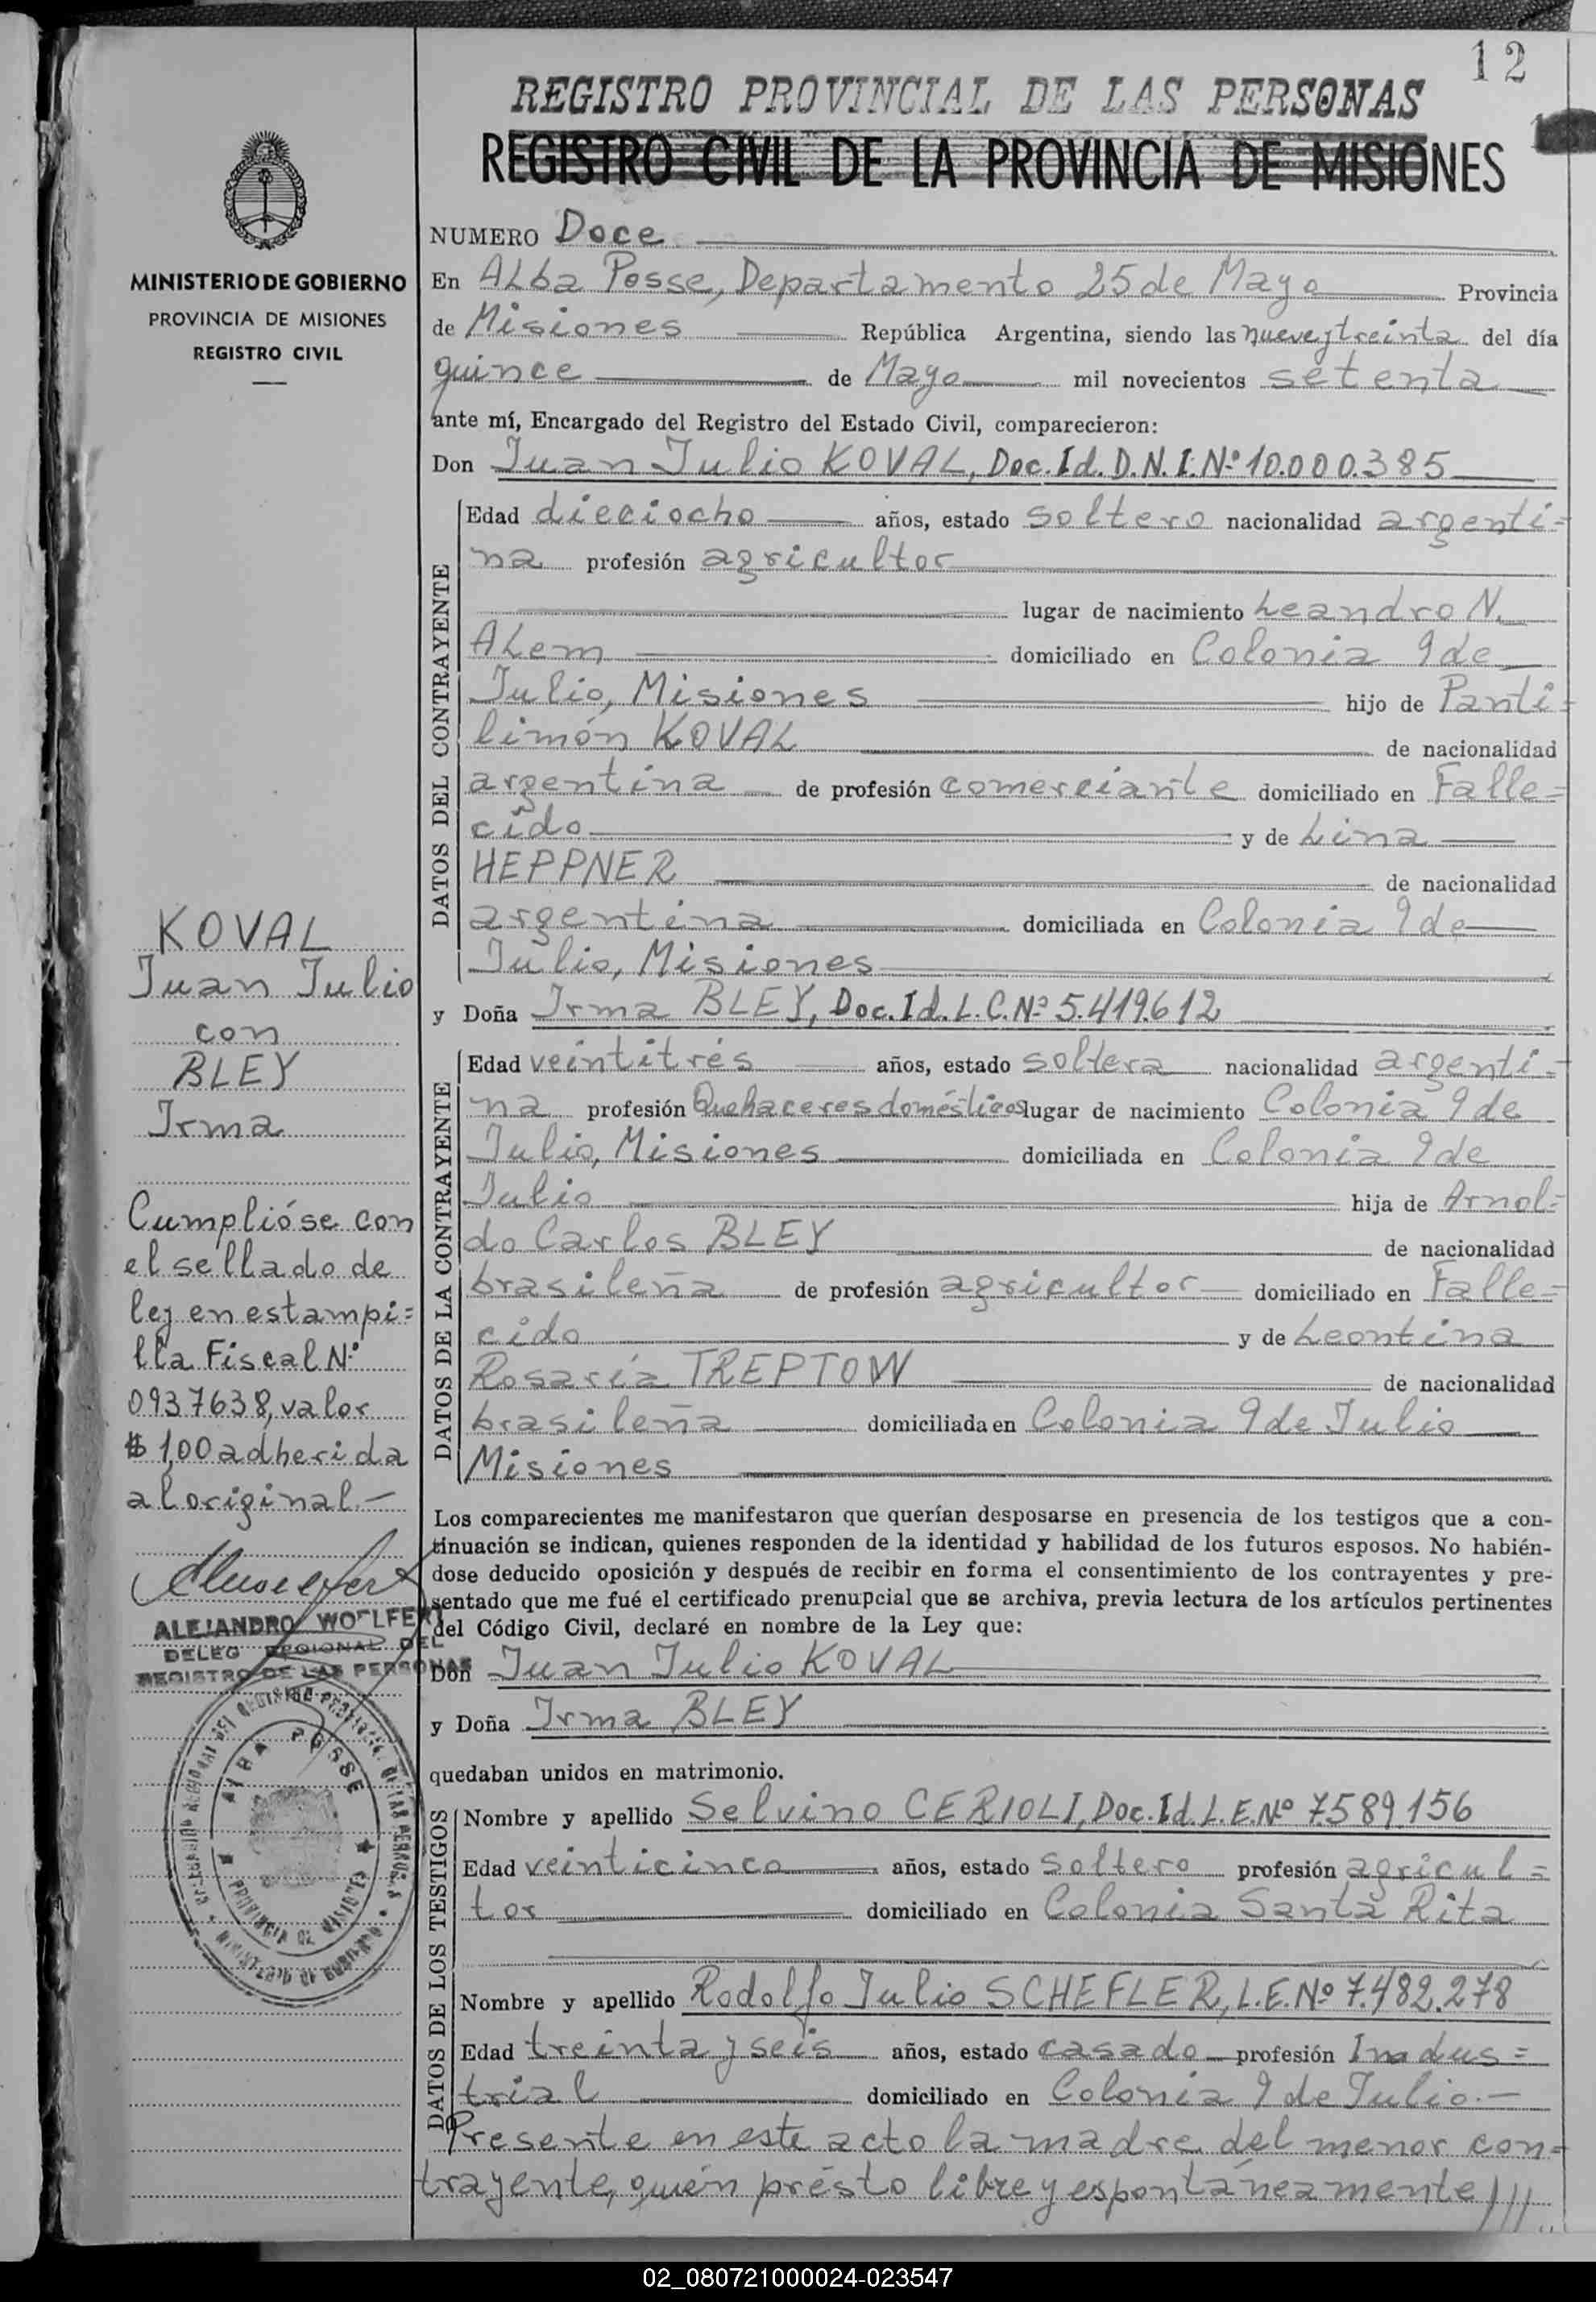 12
REGISTRO PROVINCIAL DE LAS PERSONAS
REGISTRO CIVIL DE LA PROVINCIA DE MISIONES
MINISTERIO DE GOBIERNO
PROVINCIA DE MISIONES
REGISTRO CIVIL
NUMERO Doce
En Alba Posse, Departamento 25 de Mayo Provincia
de Misiones República Argentina, siendo las nueve y treinta del día
quince de Mayo mil novecientos setenta
ante mí, Encargado del Registro del Estado Civil, comparecieron:
Don Juan Julio KOVAL, Doc. Id. D.N.I. Nº 10.000.385
DATOS DEL CONTRAYENTE
Edad dieciocho años, estado soltero nacionalidad argenti=
na profesión agricultor
lugar de nacimiento Leandro N.
Alem domiciliado en Colonia 9 de
Julio, Misiones hijo de Panti=
limón KOVAL de nacionalidad
argentina de profesión comerciante domiciliado en Falle=
cido y de Lina
HEPPNER de nacionalidad
argentina domiciliada en Colonia 9 de
Julio, Misiones
y Doña Irma BLEY, Doc. Id. L.C. Nº 5.419.612
DATOS DE LA CONTRAYENTE
Edad veintitrés años, estado soltera nacionalidad argenti=
na profesión Quehaceres domésticos lugar de nacimiento Colonia 9 de
Julio, Misiones domiciliada en Colonia 9 de
Julio hija de Arnol=
do Carlos BLEY de nacionalidad
brasileña de profesión agricultor domiciliado en Falle=
cido y de Leontina
Rosaria TREPTOW de nacionalidad
brasileña domiciliada en Colonia 9 de Julio
Misiones
Los comparecientes me manifestaron que querían desposarse en presencia de los testigos que a con-
tinuación se indican, quienes responden de la identidad y habilidad de los futuros esposos. No habién-
dose deducido oposición y después de recibir en forma el consentimiento de los contrayentes y pre-
sentado que me fué el certificado prenupcial que se archiva, previa lectura de los artículos pertinentes
del Código Civil, declaré en nombre de la Ley que:
Don Juan Julio KOVAL
y Doña Irma BLEY
quedaban unidos en matrimonio.
DATOS DE LOS TESTIGOS
Nombre y apellido Selvino CERIOLI, Doc. Id. L.E. Nº 7.589.156
Edad veinticinco años, estado soltero profesión agricul=
tor domiciliado en Colonia Santa Rita
Nombre y apellido Rodolfo Julio SCHEFLER, L.E. Nº 7.482.278
Edad treinta y seis años, estado casado profesión Indus=
trial domiciliado en Colonia 9 de Julio.-
Presente en este acto la madre del menor con=
trayente, quién présto libre y espontáneamente ///..
KOVAL
Juan Julio
con
BLEY
Irma
Cumplióse con
el sellado de
ley en estampi=
lla Fiscal Nº
0937638, valor
$ 1,00 adherida
al original.-
ALEJANDRO WOELFERT
DELEG REGIONAL DEL
REGISTRO DE LAS PERSONAS
ALBA POSSE
PROVINCIA DE MISIONES
02_080721000024-023547